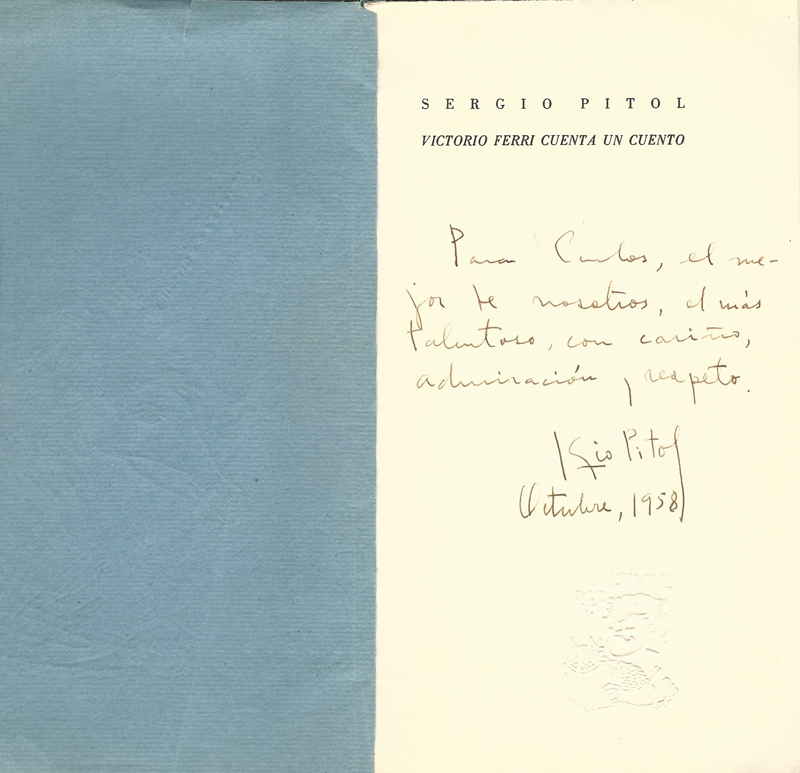 SERGIO PITOL
VICTORIO FERRI CUENTA UN CUENTO
Para Carlos, el me-
jor de nosotros, el más
talentoso, con cariño,
admiración y respeto.
Sergio Pitol
Octubre, 1958